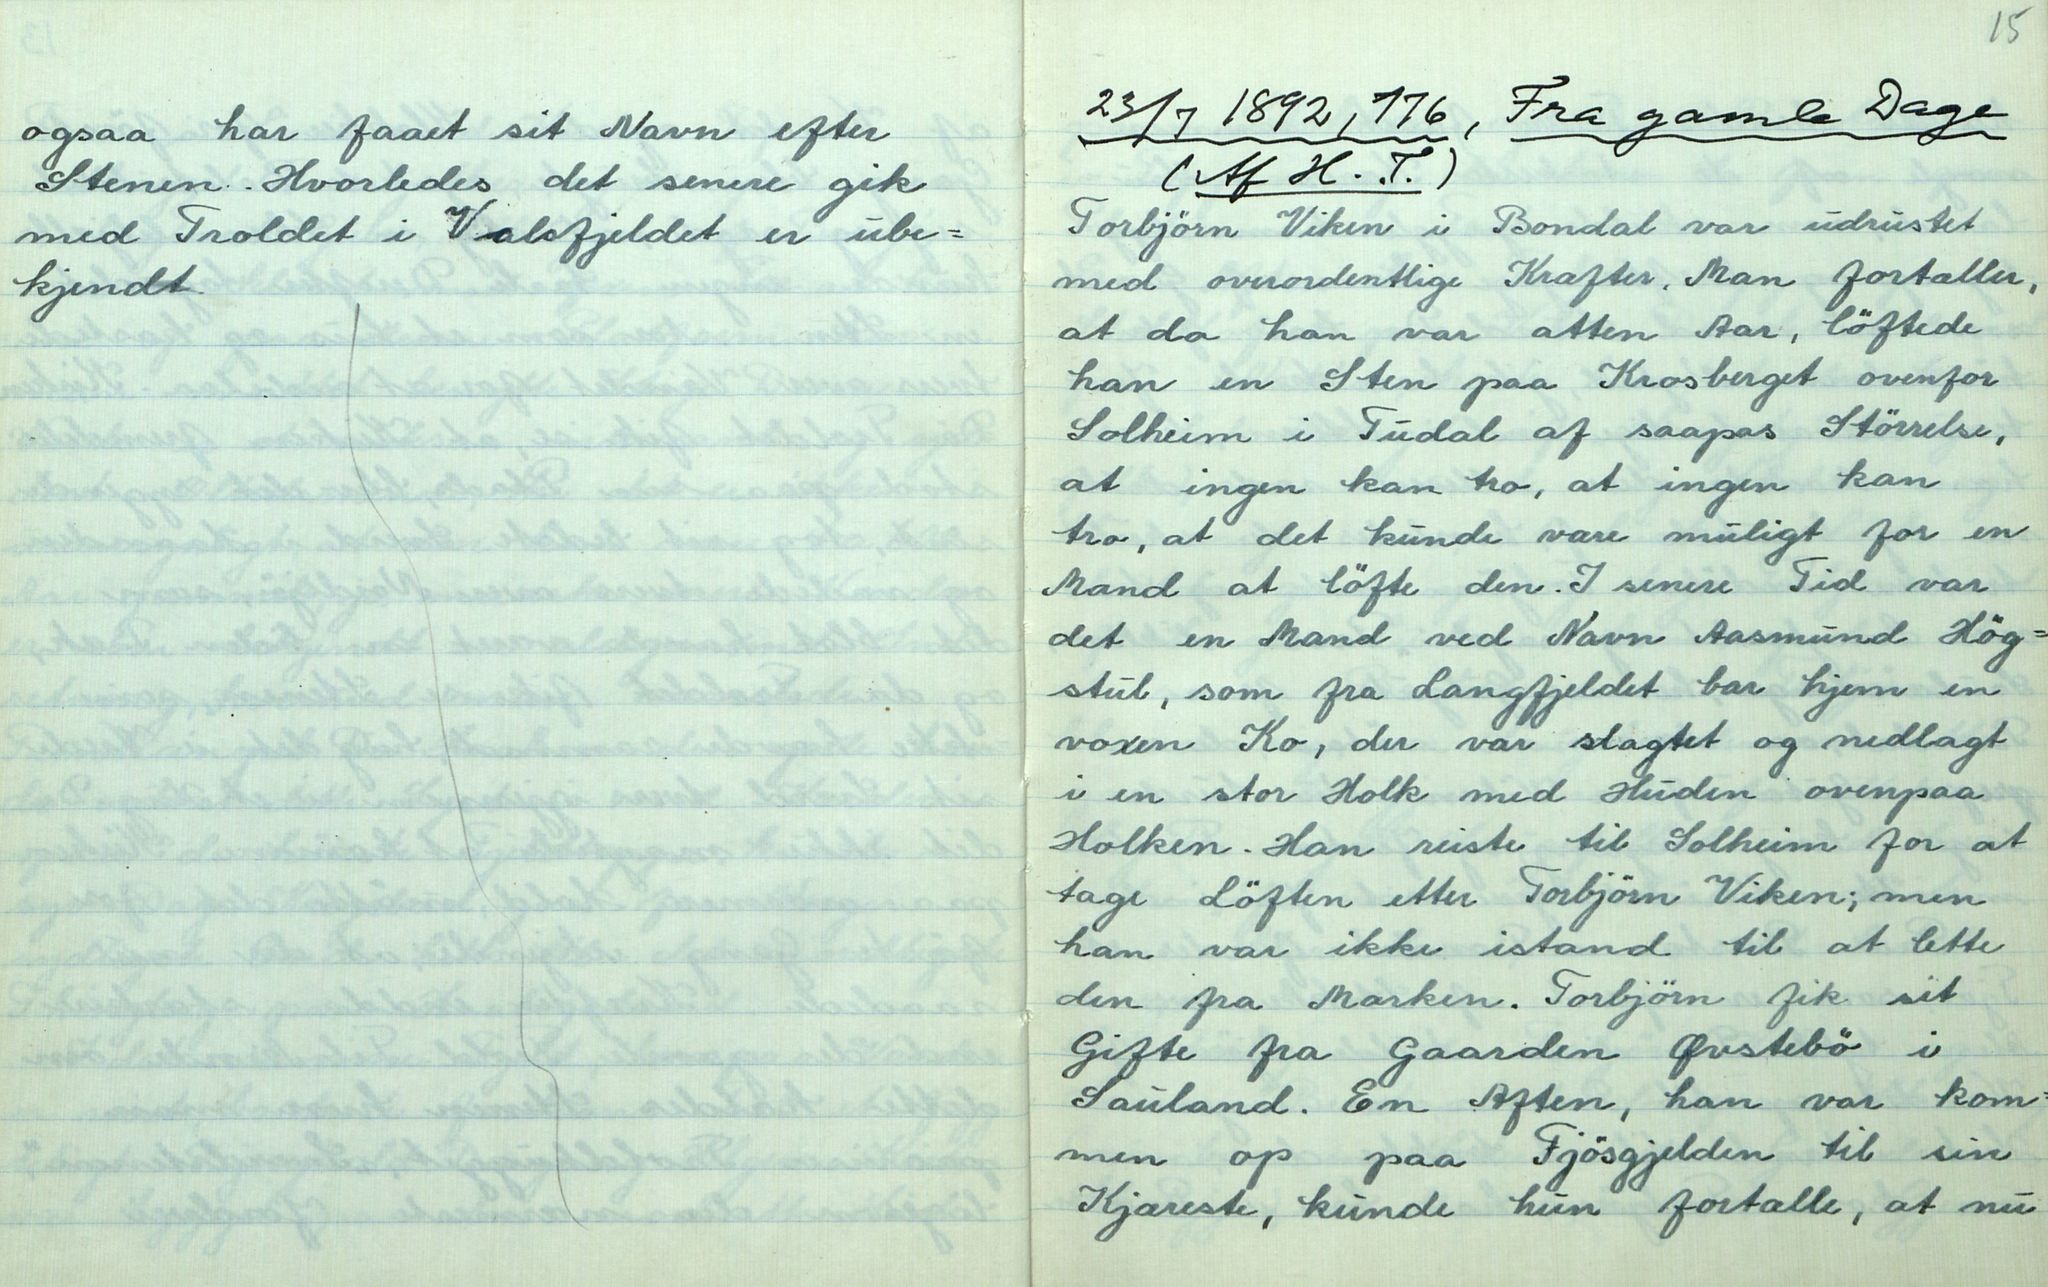 ogsaa har faaet sit Navn efter
Stenen. Hvorledes det senere gik
med Troldet i Valsfjeldet er ube=
kjendt
15
23/7 1892, 176, Fra gamle Dage
(Af H. T.)
Torbjörn Viken i Bondal var udrustet
med overordentlige Kræfter. Man fortæller,
at da han var atten Aar, löftede
han en Sten paa Krosberget ovenfor
Solheim i Tudal af saapas Störrelse,
at ingen kan tro, at ingen kan
tro, at det kunde være muligt for en
Mand at löfte den. I senere Tid var
det en Mand ved Navn Aasmund Hög=
stul, som fra Langfjeldet bar hjem en
voxen Ko, der var slagtet og nedlagt
i en stor Holk med Huden ovenpaa
Holken. Han reiste til Solheim for at
tage Löften etter Torbjörn Viken; men
han var ikke istand til at lette
den fra Marken. Torbjörn fik sit
Gifte fra Gaarden Øvstebö i
Sauland. En Aften, han var kom=
men op paa Fjösgjelden til sin
Kjæreste, kunde hun fortælle, at nu